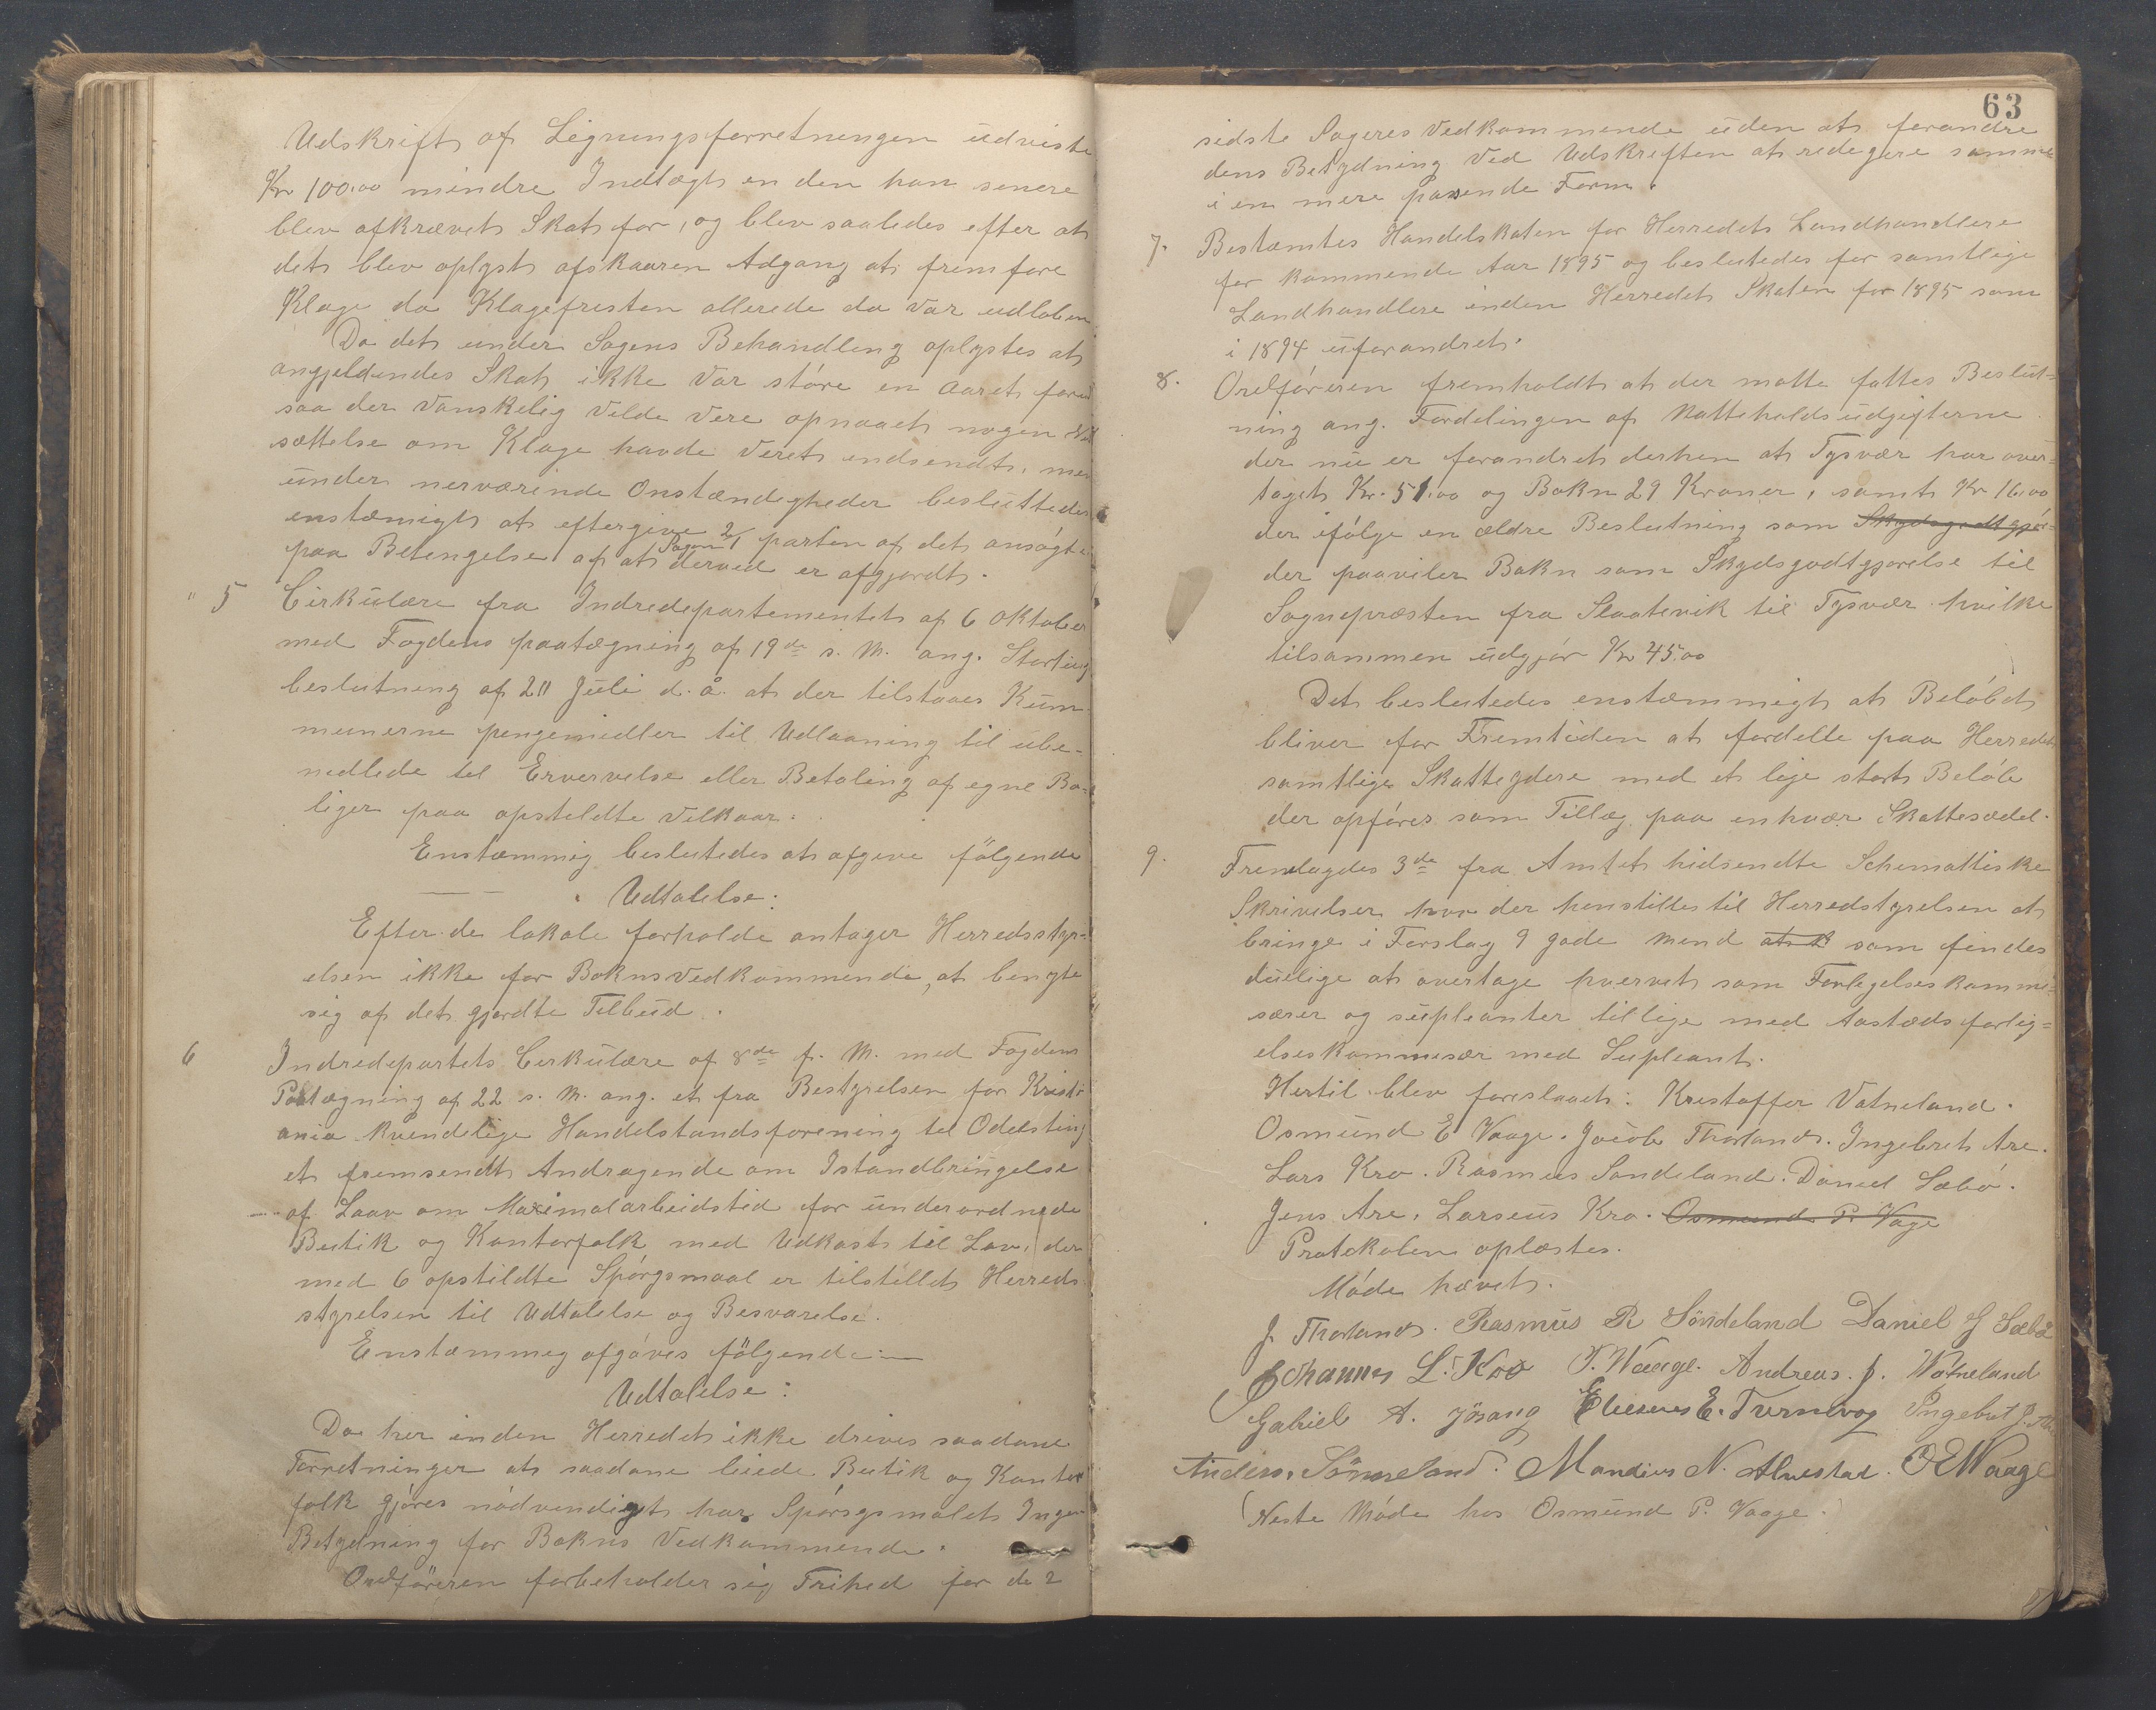 Udskrift af Ligningsforretningen udviste
Kr 100.00 mindre Indtægt en den han senere
blev afkrævet Skat for, og blev saaledes efter at
det blev oplyst afskaaren Adgang at fremføre
Klage da Klagefristen allerede da var udløben
Da det under Sagens Behandling oplystes at
angjeldendes Skat ikke var störe en aaret forud
saa der vanskelig vilde vere opnaaet nogen Ned
sættelse om Klage havde veret indsendt, men
under nerværende Omstændigheder besluttedes
enstæmigt at eftergive 2/1 parten af det ansøgte
paa Betengelse af at Sagen derved er afgjordt.
" 5 Cirkulære fra Indredepartementet af 6 oktober
med Fogdens paategning af 19de s. M. ang. Storting
beslutning af 20 Juli d. å. at der tilstaaes Kum
munerne pengemidler til Udlaaning til ube-
medlede til Ervervelse eller Betaling af egne Bo-
liger paa opsteldte vilkaar.
Enstæmmig beslutedes at afgive fölgende
Udtalelse:
Efter de lokale forholde antager Herredsstyr-
elsen ikke for Boknsvedkommende, at benyte
sig af det gjordte Tilbud.
6 Indredepartets Cerkulære af 8de f. M. med Fogdens
Paategning af 22 s. M. ang. et fra Bestyrelsen for Kristi
ania kvendelige Handelstandsforening til Odelsting
et fremsendt Andragende om Istandbringelse
af Laav om Maximalarbeidstid for underordnede
Butik og Kontorfolk med Udkast til Lov, der
med 6 opstildte Spörgsmaal er tilstillet Herreds
styrelsen til Udtalelse og Besvarelse.
Enstæmmeg afgöves fölgende
Udtalelse:
Da her inden Herredet ikke drives saadane
Forretninger at saadane leiede Butik og Kontor
folk gjöres nödvendigt har Spörsgsmalet Ingen
Betydning for Bokns Vedkommende.
Ordföreren forbeholder sig Frihed for de 2
63
sidste Sageres Vedkommende uden at forandre
dens Betydning ved Udskriften at redegere samme
i en mere pasende Form.
7. Bestæmtes Handelskaten for Herredets Landhandlere
for kommende Aar 1895 og beslutedes for samtlige
Landhandlere inden Herredet Skaten for 1895 som
i 1894 uforandret.
8. Ordföreren fremholdt at der motte fattes Beslut-
ning ang. Fordelingen af Natteholdsudgifterne
der nu er forandret derhen at Tysvær har over-
taget Kr. 51.00 og Bokn 29 Kroner, samt Kr 16.00
der ifölge en ældre Beslutning som Skydsgodtgjör-
der paaviler Bokn som Skydsgodtgjorelse til
Sognepræsten fra Slaatevik til Tysvær hvilke
tilsammen udgjör Kr 45.00
Det beslutedes enstæmmigt at Belöbet
bliver for Fremtiden at fordelle paa Herredets
samtlige Skatteydere med et lige stort Belöb
der opföres som Tillæg paa enhvær Skattesedel.
9. Fremlagdes 3de fra Amtet hidsendte Schemattiske
Skrivelser hvor der henstilles til Herredstyrelsen at
bringe i Forslag 9 gode Mend at som findes
duelige at overtage hvervet som Forligelseskommi-
særer og supleanter tillige med Aastedsforlig-
elseskommisær med Supleant.
Hertil blev foreslaaet: Kristoffer Vatneland.
Osmund E Vaage. Jacob Thorland. Ingebret Are.
Lars Kro. Rasmus Sondeland. Daniel Sæbö.
Jens Are. Larseus Kro. Osmund P. Vage
Protokolen oplæstes.
Möde hævet.
J. Thorland. Rasmus R Söndeland Daniel J Sæbö
Johannes L. Kro T. Waage. Andreas. J. Watneland
Gabriel A. Jösang Elleseus E. Tvernevog Ingebret J. Are
Anders Sönneland. Mandius N. Alvestad. O E Waage
(Neste Möde hos Osmund P. Vaage.)